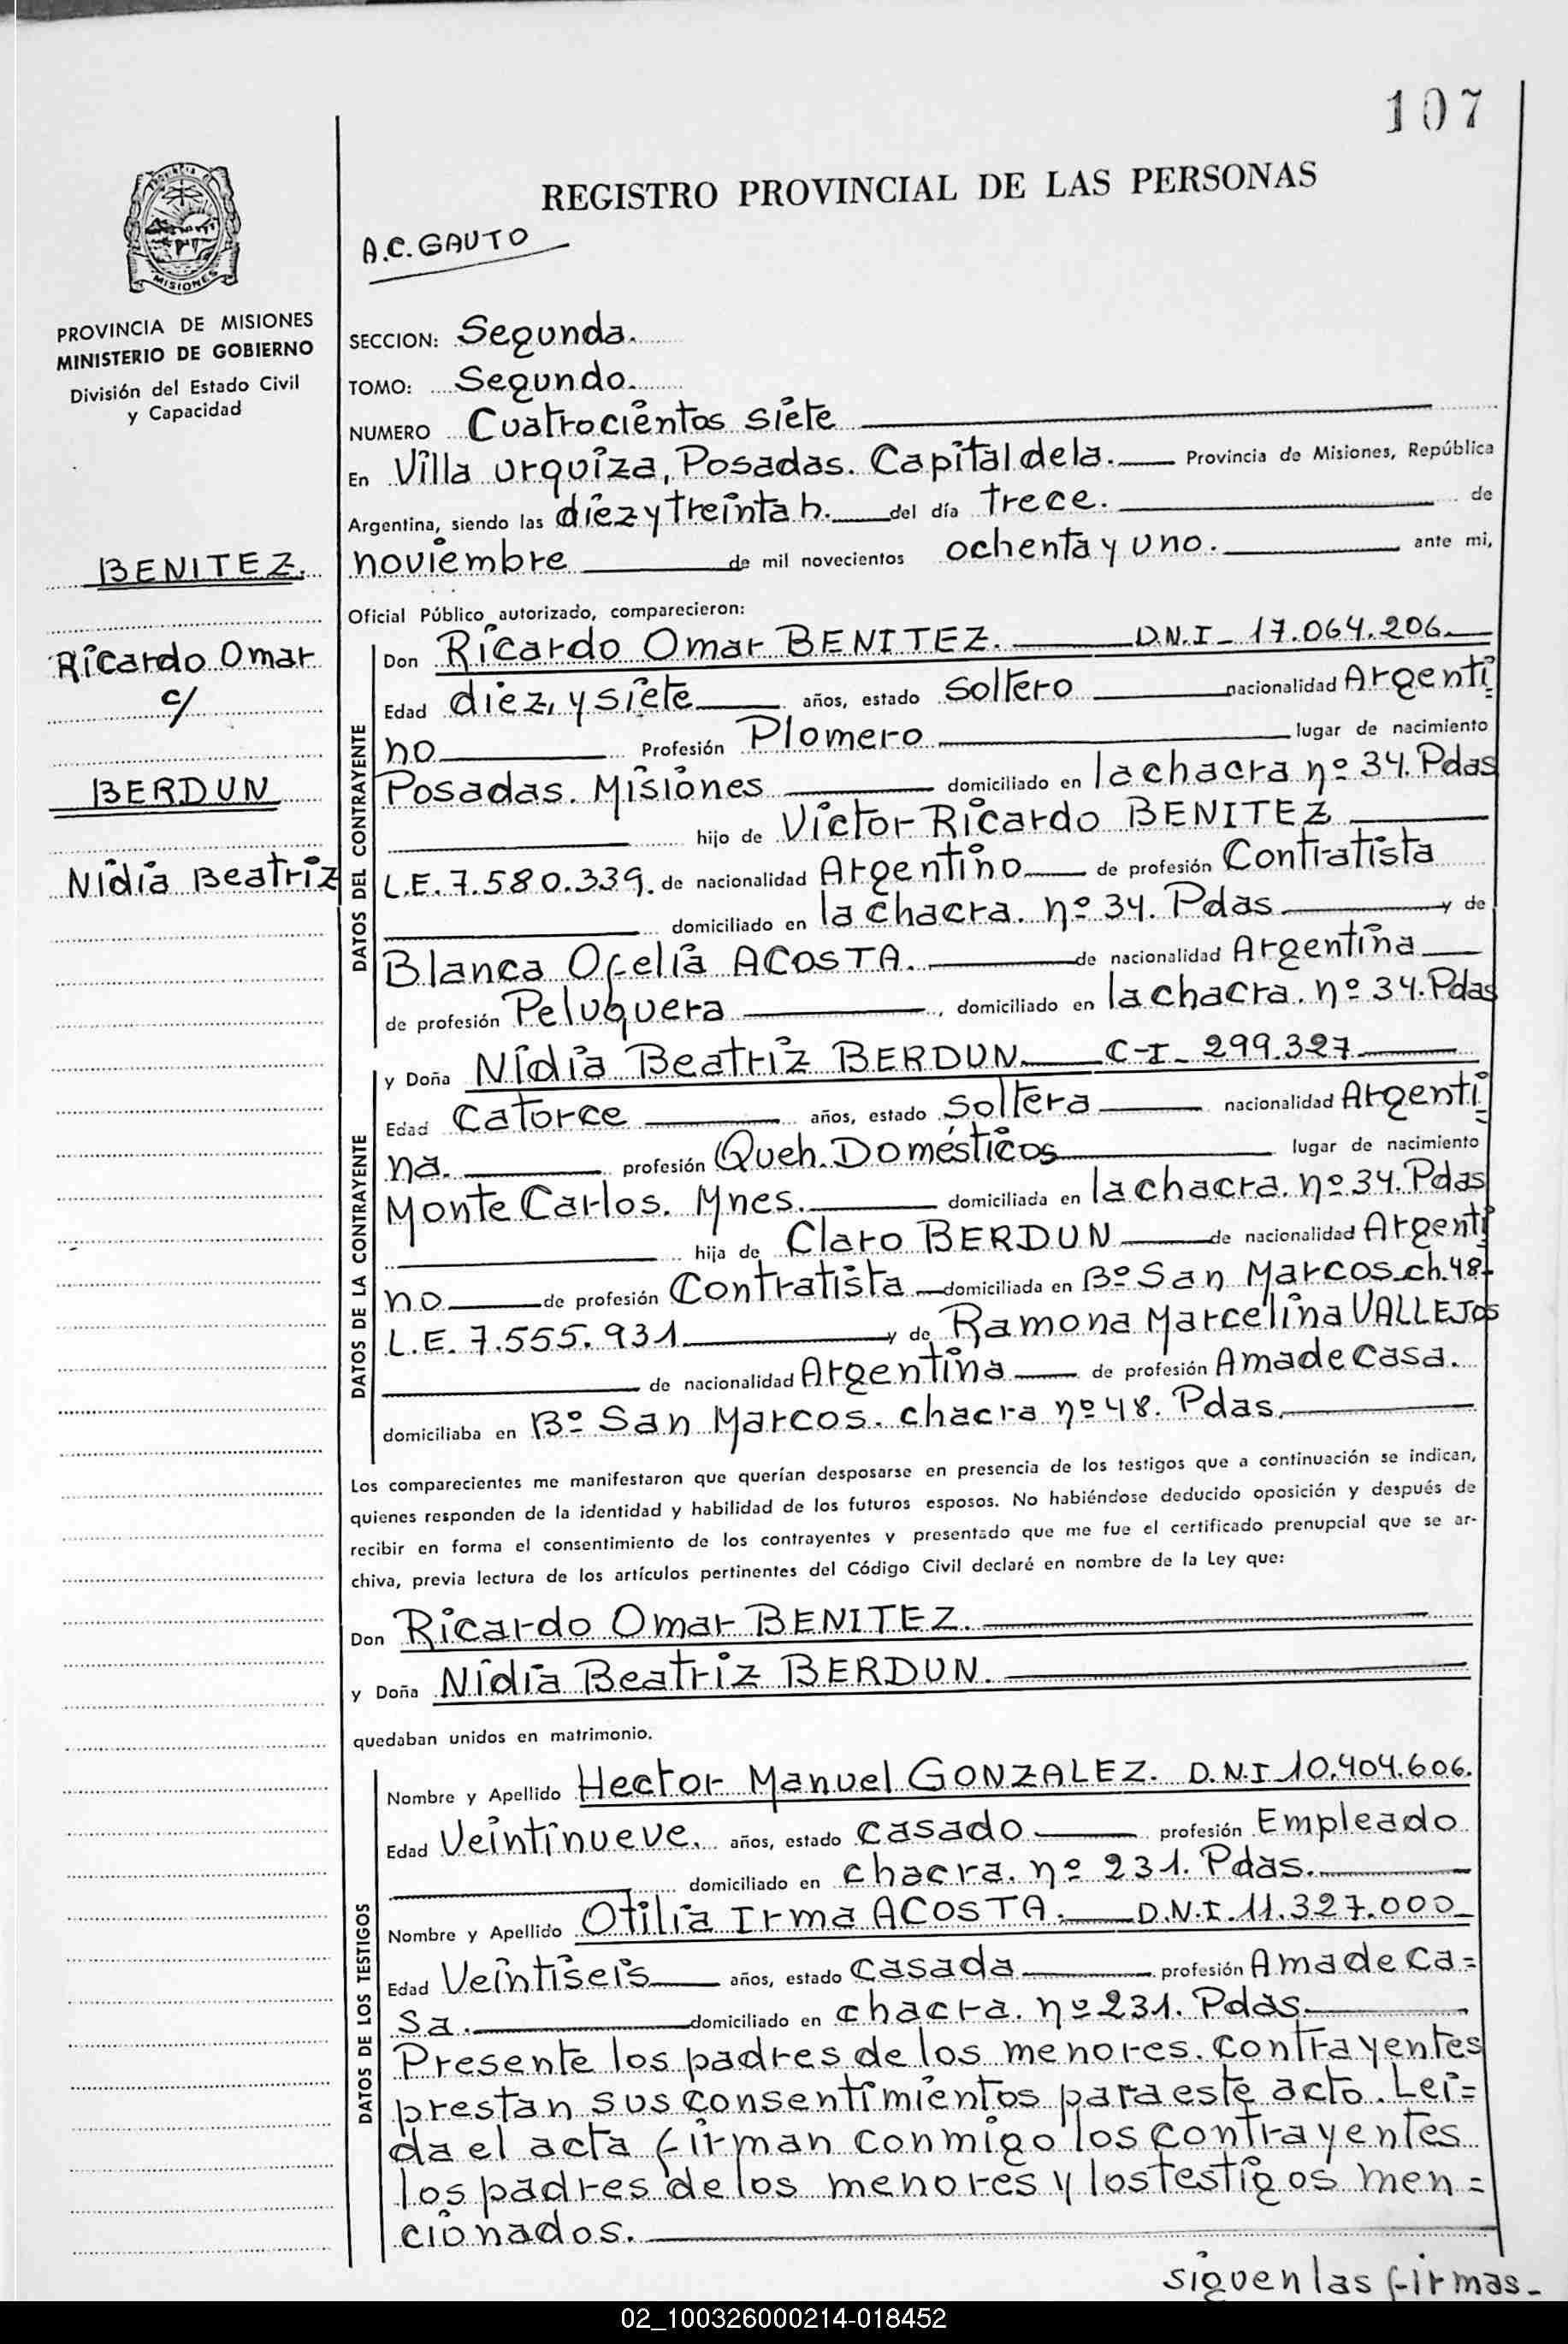 107
REGISTRO PROVINCIAL DE LAS PERSONAS
A.C. GAUTO
PROVINCIA DE MISIONES
MINISTERIO DE GOBIERNO
División del Estado Civil
y Capacidad
BENITEZ.
Ricardo Omar
c/
BERDUN
Nidia Beatriz
SECCION: Segunda.
TOMO: Segundo.
NUMERO Cuatrocientos siete
En Villa Urquiza, Posadas. Capital de la. Provincia de Misiones, República
Argentina, siendo las diez y treinta h. del día trece. de
noviembre de mil novecientos ochenta y uno. ante mi,
Oficial Público autorizado, comparecieron:
DATOS DEL CONTRAYENTE
Don Ricardo Omar BENITEZ. D.N.I_ 17.064.206
Edad diez, y siete años, estado Soltero nacionalidad Argenti
no Profesión Plomero lugar de nacimiento
Posadas. Misiones domiciliado en la chacra nº 34. Pdas
hijo de Victor Ricardo BENITEZ
L.E. 7.580.339. de nacionalidad Argentino de profesión Contratista
domiciliado en la chacra. nº 34. Pdas y de
Blanca Ofelia ACOSTA. de nacionalidad Argentina
de profesión Peluquera, domiciliado en la chacra. nº 34. Pdas
DATOS DE LA CONTRAYENTE
y Doña Nidia Beatriz BERDUN C-I_ 299.327
Edad Catorce años, estado Soltera nacionalidad Argenti
na. profesión Queh. Domésticos lugar de nacimiento
Monte Carlos. Mnes. domiciliada en la chacra. nº 34. Pdas
hija de Claro BERDUN de nacionalidad Argenti
no de profesión Contratista domiciliada en Bº San Marcos ch. 48.
L.E. 7.555.931 y de Ramona Marcelina VALLEJOS
de nacionalidad Argentina de profesión Ama de Casa.
domiciliaba en Bº San Marcos. chacra nº 48. Pdas.
Los comparecientes me manifestaron que querían desposarse en presencia de los testigos que a continuación se indican,
quienes responden de la identidad y habilidad de los futuros esposos. No habiéndose deducido oposición y después de
recibir en forma el consentimiento de los contrayentes y presentado que me fue el certificado prenupcial que se ar-
chiva, previa lectura de los artículos pertinentes del Código Civil declaré en nombre de la Ley que:
Don Ricardo Omar BENITEZ.
y Doña Nidia Beatriz BERDUN.
quedaban unidos en matrimonio.
DATOS DE LOS TESTIGOS
Nombre y Apellido Hector Manuel GONZALEZ. D.N.I 10.404.606.
Edad Veintinueve. años, estado casado profesión Empleado
domiciliado en chacra. nº 231. Pdas.
Nombre y Apellido Otilia Irma ACOSTA. D.N.I. 11.327.000
Edad Veintiseis años, estado casada profesión Ama de Ca=
sa. domiciliado en chacra. nº 231. Pdas.
Presente los padres de los menores. contrayentes
prestan sus consentimientos para este acto. Lei=
da el acta firman conmigo los contrayentes
los padres de los menores y los testigos men=
cionados.
siguen las firmas_
02_100326000214-018452